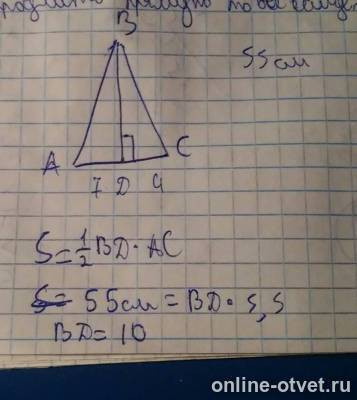 B
55см
A
C
7 D 4
S = 1/2 BD · AC
S = 55см = BD · 5,5
BD = 10
online-otvet.ru